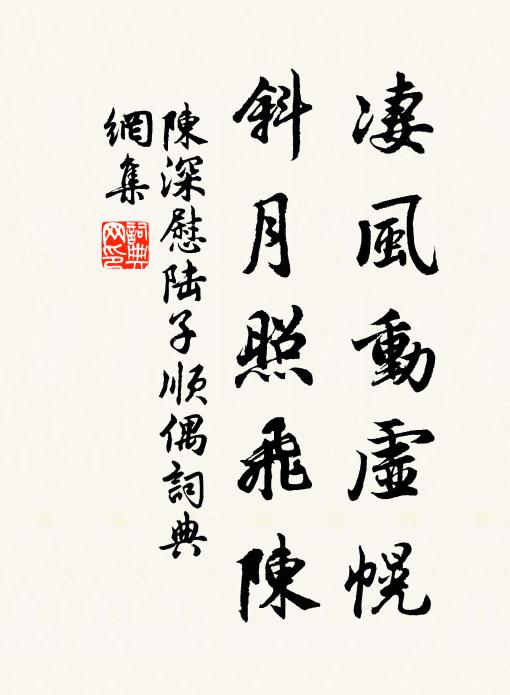 凄風動虛幌
斜月照飛陳
陳深慰陆子順偶詞典
網集
詞典
网印